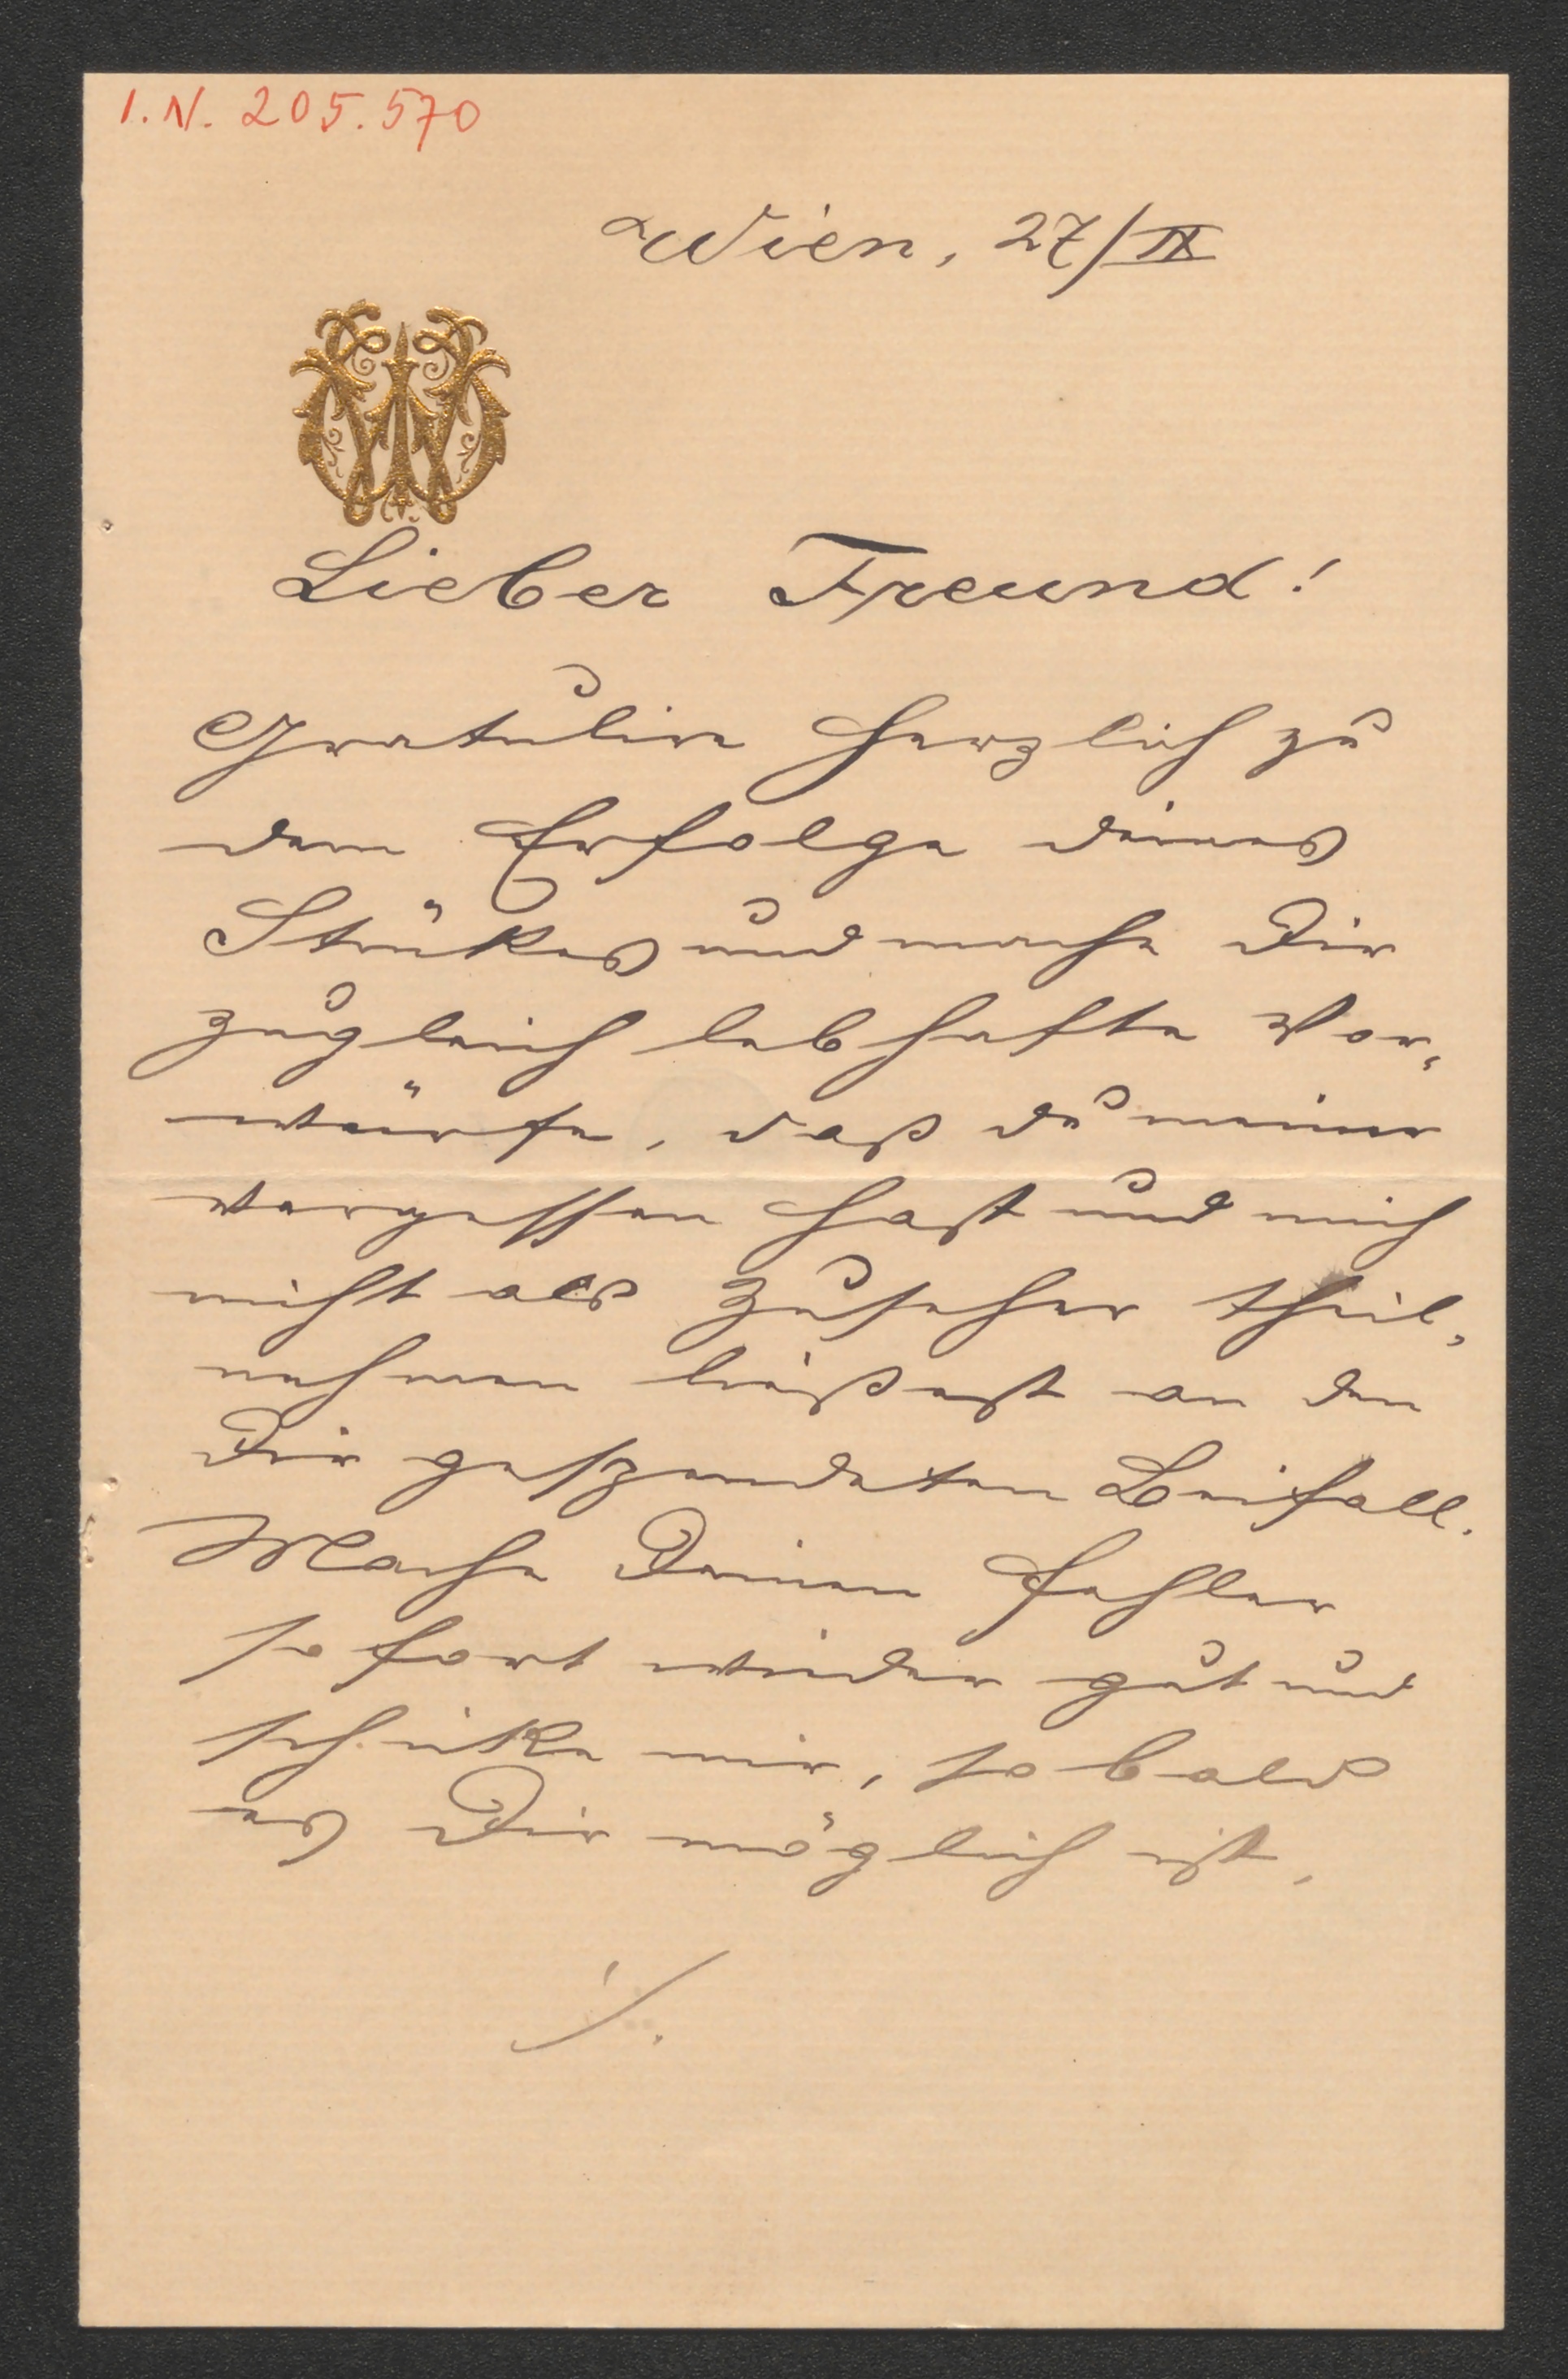 I.N. 205.570
Wien, 27/IX
Lieber Freund!
Gratulire herzlich zu
dem Erfolge deines
Stükes und mache Dir
zugleich lebhafte Vor-
würfe, daß du meiner
vergessen hast und mich
nicht als Zuseher theil-
nehmen ließest an den
Dir geszendeten Beifall.
Mache Deinen Fehler
sofort wieder gut und
schike mir, so bald
es Dir möglich ist,
./.